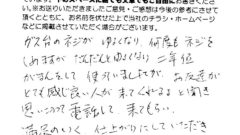 ※お送りいただきましたご意見・ご感想は今後の参考にさせて
頂くとともに、お名前を伏せた上で当社のチラシ・ホームページ
などに掲載させていただく場合がございます。
ガス台のネジが ゆるくなり、何度も ネジを
しめますが だんだんとゆるくなり 二年位
がまんをして 使っていましたが、お友達が
とても感じ良い人が来てくれるよと聞き
思いきって電話して、来てもらい
満足のいく、仕上がりにしていただき